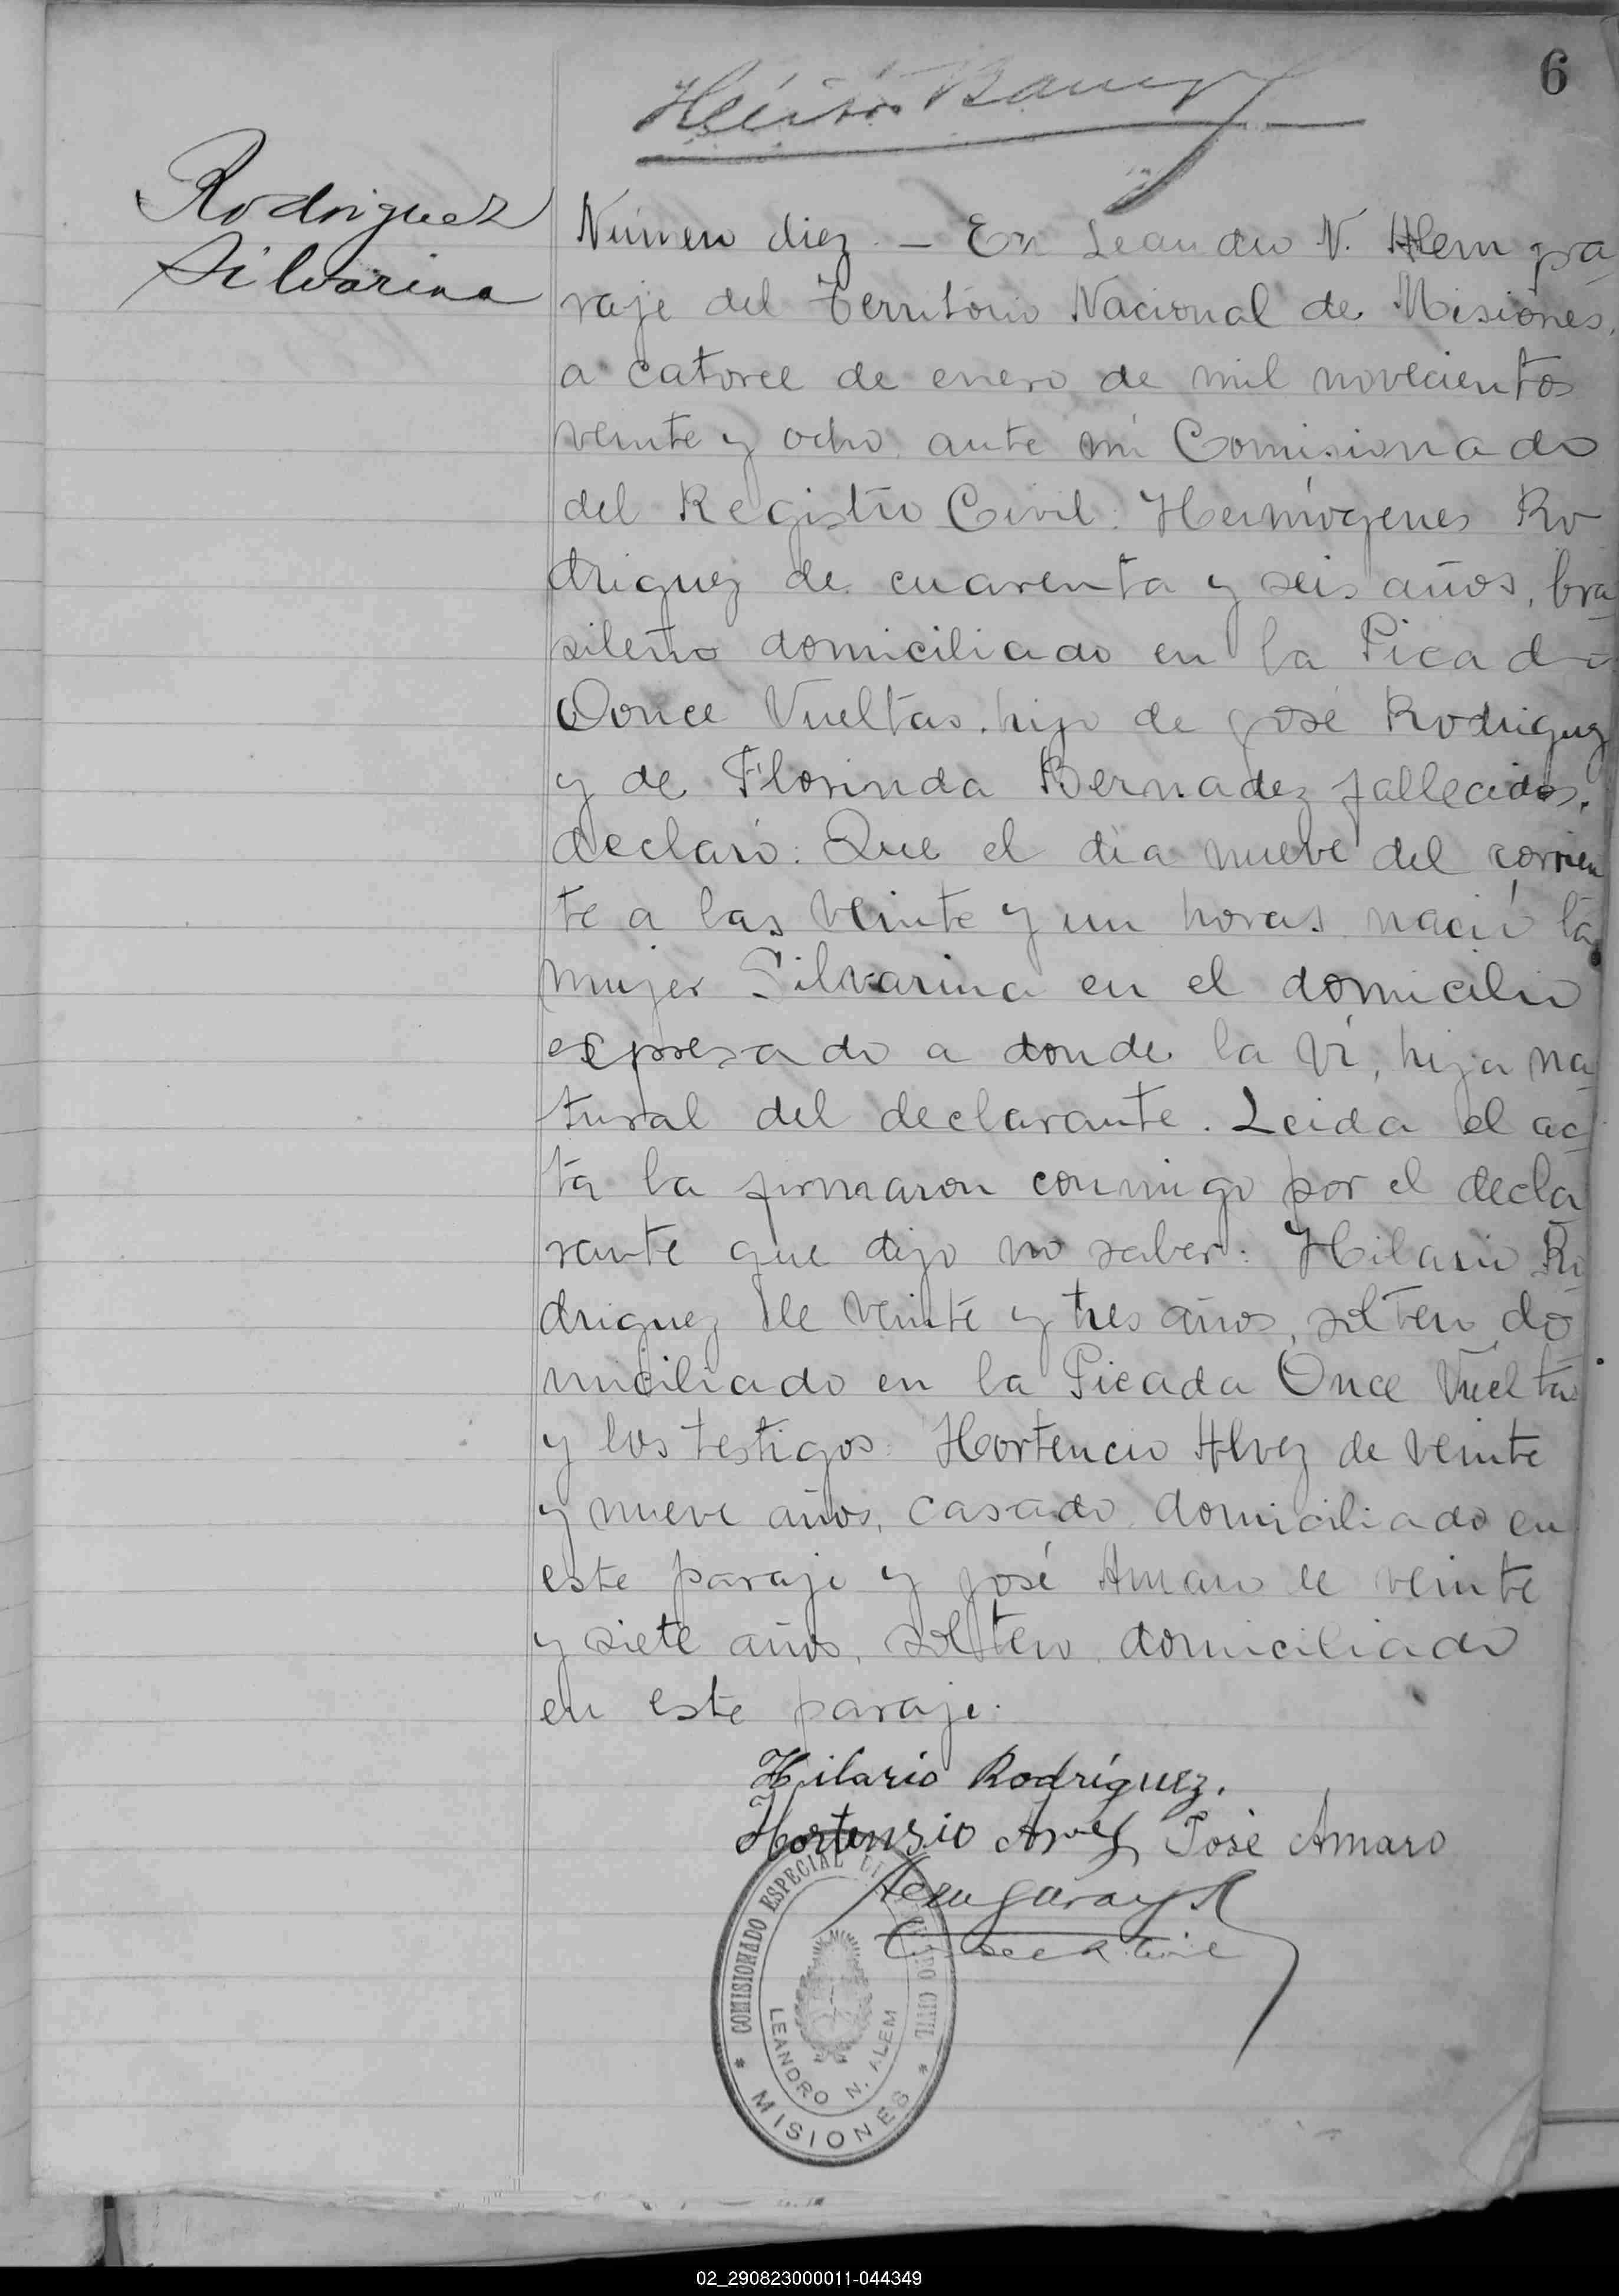 6
Rodriguez
Silvarina
Número diez. — En Leandro N. Alem pa
raje del Territorio Nacional de Misiones,
a catorce de enero de mil novecientos
veinte y ocho, ante mi Comisionado
del Registro Civil: Hermógenes Ro
driguez de cuarenta y seis años, bra
sileño domiciliado en la Picada
Oonce Vueltas, hijo de José Rodriguez
y de Florinda Bernadez fallecidos,
declaró: Que el día nueve del corrien
te a las veinte y un horas nació la
mujer Silvarina en el domicilio
expresado a donde la ví, hija na
tural del declarante. Leida el ac
ta la firmaron conmigo por el decla
rante que dijo no saber: Hilario Ro
driguez de veinte y tres años, soltero, do
miciliado en la Picada Once Vueltas
y los testigos: Hortencio Alvez de veinte
y nueve años, casado, domiciliado en
este paraje y José Amaro de veinte
y siete años, soltero, domiciliado
en este paraje.
Hilario Rodríguez.
Hortensio José Amaro
COMISIONADO ESPECIAL DEL REGISTRO CIVIL
LEANDRO N. ALEM
* MISIONES *
02_290823000011-044349